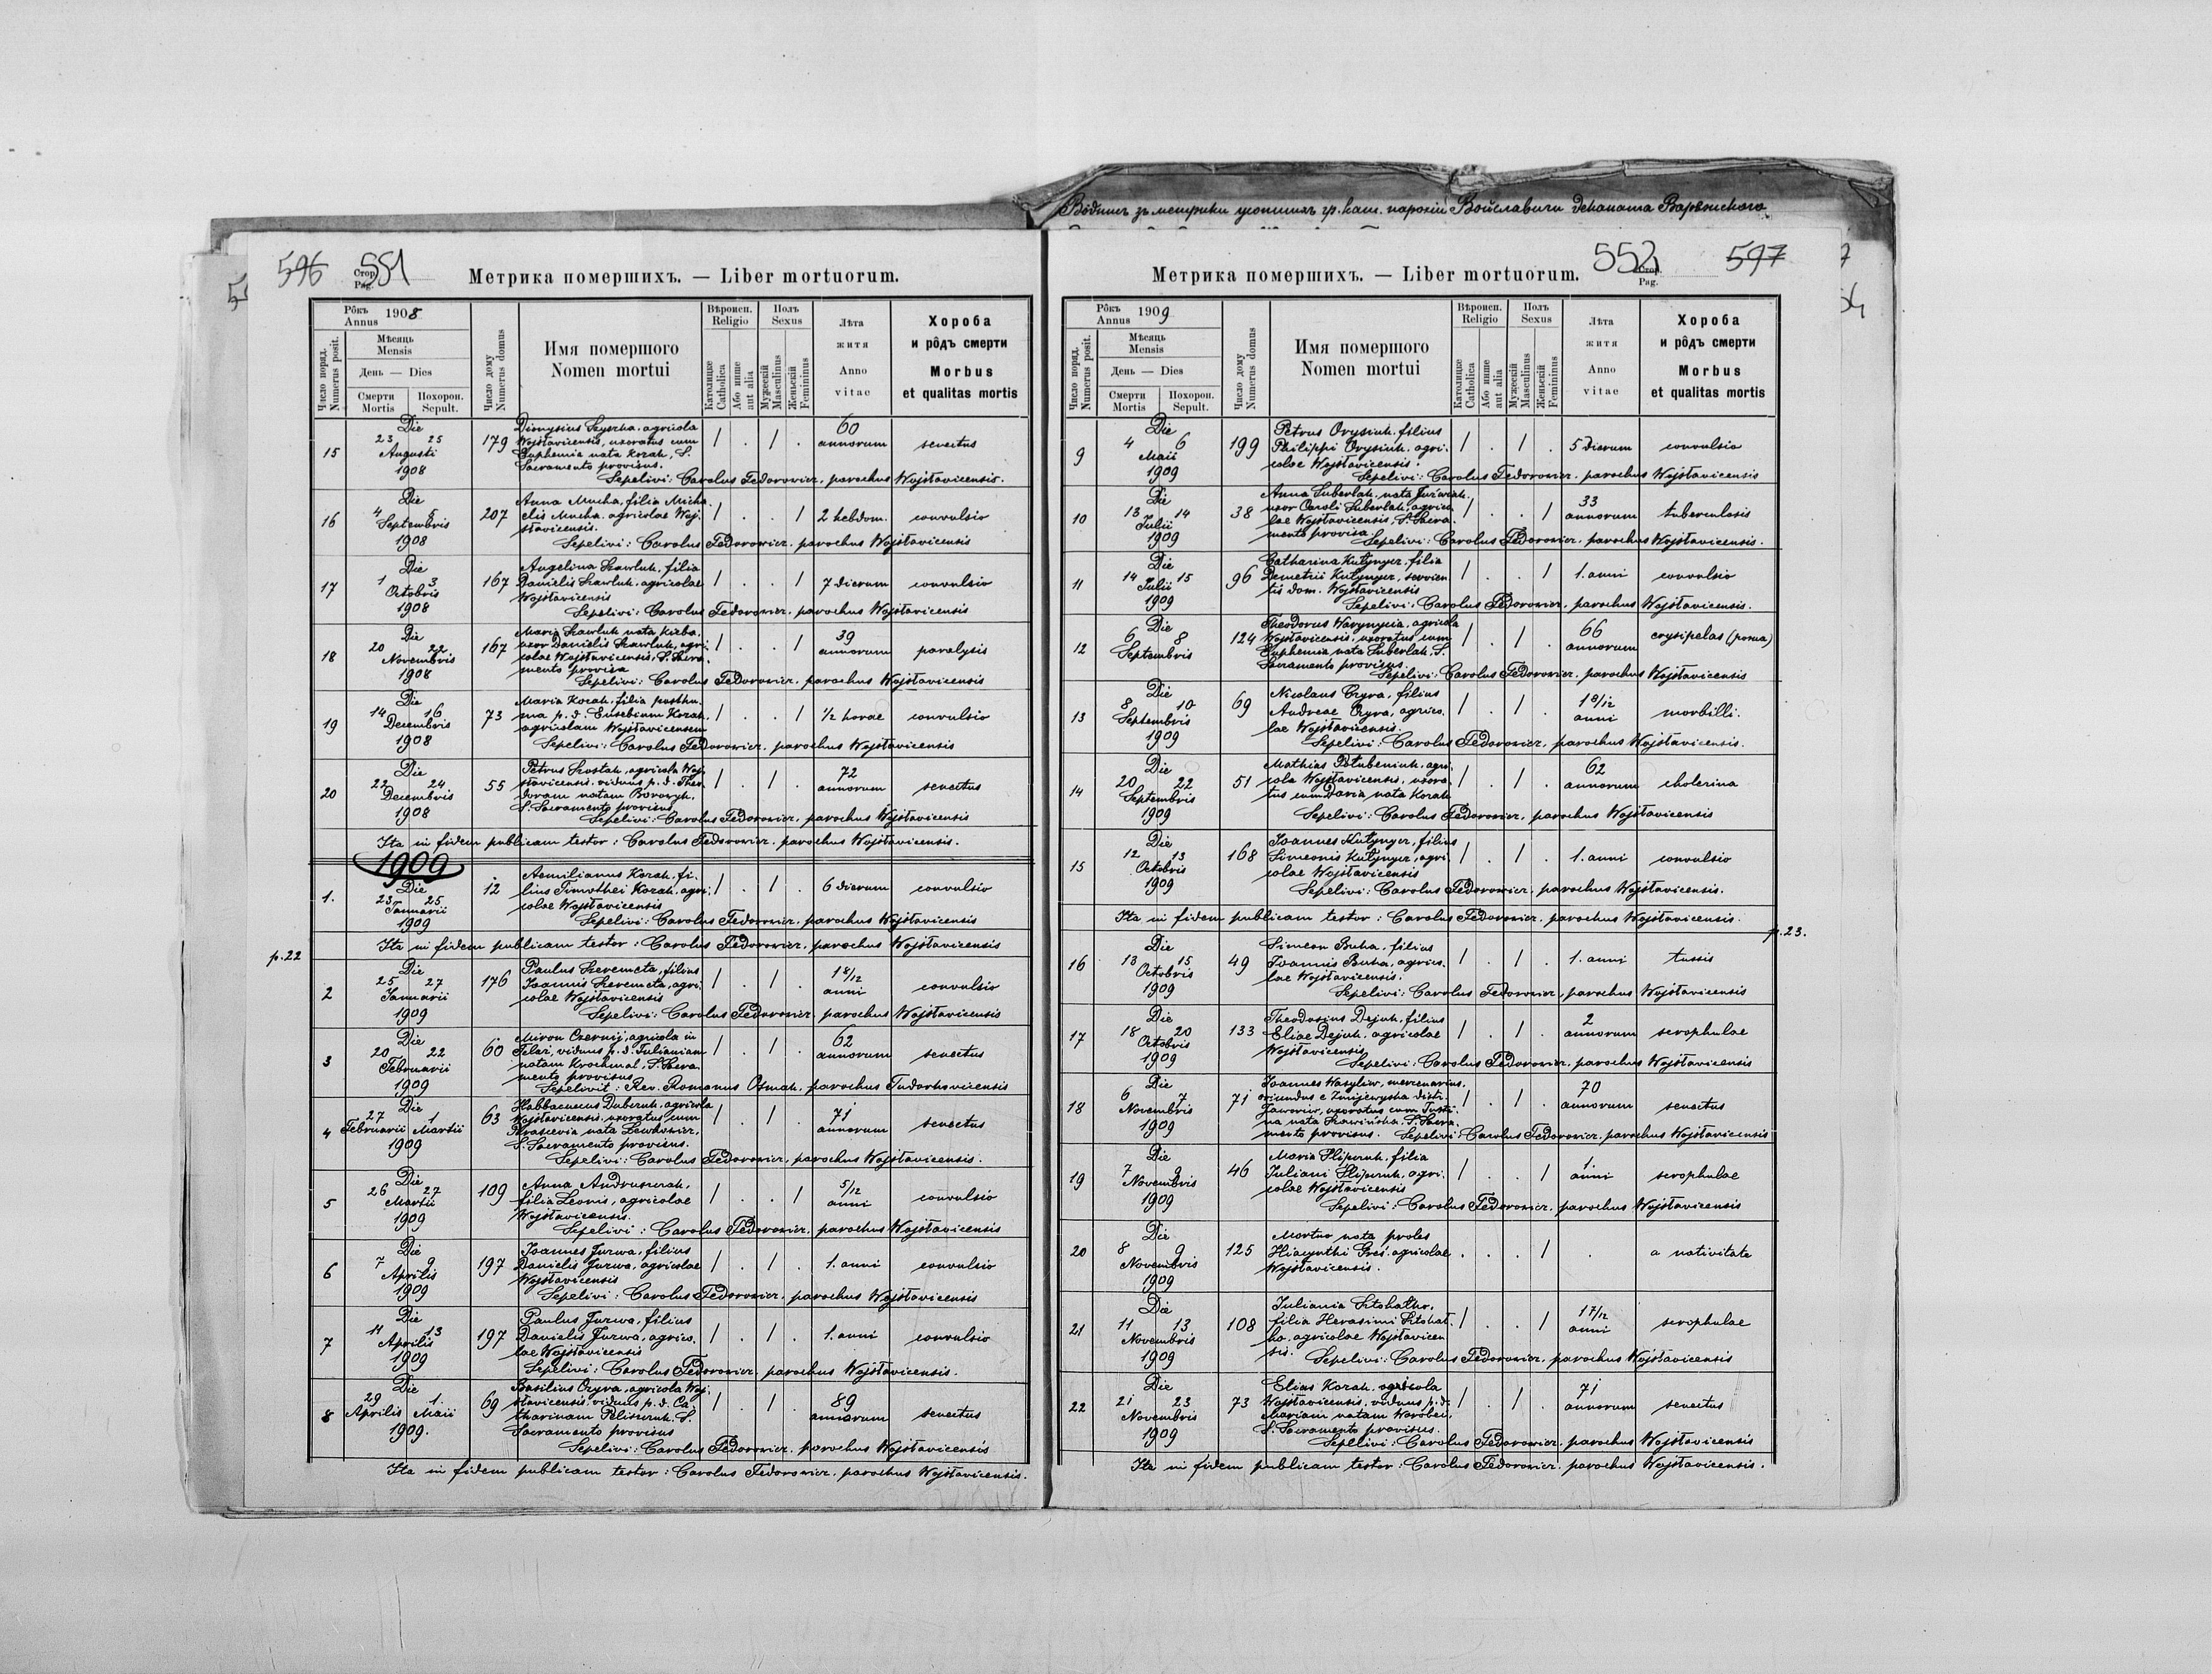 Вôдпись зъ метрики усопшихъ гр. кат. парохіи Войславичи деканата Варяжского
596 Стор. Pag. 551
Метрика помершихъ. — Liber mortuorum.
Рôкъ Annus 1908
Мѣсяць Mensis
День — Dies
Смерти Mortis
Похорон. Sepult.
Число поряд. Numerus posit.
Число дому Numerus domus
Имя помершого Nomen mortui
Вѣроисп. Religio
Католицке Catholica
Або инше aut alia
Полъ Sexus
Мужескій Masculinus
Женьскій Femininus
Лѣта житя Anno vitae
Хороба и рôдъ смерти Morbus et qualitas mortis
15 Die 23 25 Augusti 1908 179
Dionysius Szyszka, agricola
Wojsławicensis, uxoratus cum
Euphemia nata Korah, S.
Sacramento provisus.
1 . 1 . 60 annorum senectus
Sepelivi: Carolus Fedorowicz, parochus Wojsławicensis.
16 Die 4 5 Septembris 1908 207
Anna Mucha, filia Micha
elis Mucha, agricolae Woj-
sławicensis.
1 . . 1 2 hebdom. convulsio
Sepelivi: Carolus Fedorowicz, parochus Wojsławicensis
17 Die 1 3 Octobris 1908 167
Angelina Szawluk, filia
Danielis Szawluk, agricolae
Wojsławicensis
1 . . 1 7 dierum convulsio
Sepelivi: Carolus Fedorowicz, parochus Wojsławicensis
18 Die 20 22 Novembris 1908 167
Maria Szawluk nata Kizba,
uxor Danielis Szawluk, agri-
colae Wojsławicensis, S. Sacra-
mento provisa
1 . . 1 39 annorum paralysis
Sepelivi: Carolus Fedorowicz, parochus Wojsławicensis
19 Die 14 16 Decembris 1908 73
Maria Korah, filia posthu-
ma p. d. Eusebium Korah,
agricolam Wojsławicensem
1 . . 1 1/2 horae convulsio
Sepelivi: Carolus Fedorowicz, parochus Wojsławicensis
20 Die 22 24 Decembris 1908 55
Petrus Szostak, agricola Woj-
sławicensis, viduus p. d. Theo
doram natam Borowyk,
S. Sacramento provisus
1 . 1 . 72 annorum senectus
Sepelivi: Carolus Fedorowicz, parochus Wojsławicensis
Ita in fidem publicam testor: Carolus Fedorowicz, parochus Wojsławicensis.
1909
1. Die 23 25 Januarii 1909 12
Aemilianus Korah, fi-
lius Timothei Korah, agri-
colae Wojsławicensis
1 . 1 . 6 dierum convulsio
Sepelivi: Carolus Fedorowicz, parochus Wojsławicensis
p. 22 Ita in fidem publicam testor: Carolus Fedorowicz, parochus Wojsławicensis
2 Die 25 27 Januarii 1909 176
Paulus Szeremeta, filius
Joannis Szeremeta, agri-
colae Wojsławicensis
1 . 1 . 1 8/12 anni convulsio
Sepelivi: Carolus Fedorowicz, parochus Wojsławicensis
3 Die 20 22 Februarii 1909 60
Miron Czernij, agricola in
Telaż, viduus p. d. Julianiam
natam Krochmal, S. Sacra
mento provisus
1 . 1 . 62 annorum senectus
Sepelivit: Rev. Romanus Osmak, parochus Tudorkovicensis
4 Die 27 1 Februarii Martii 1909 63
Habbacucus Duberuk, agricola
Wojsławicensis, uxoratus cum
Parascevia nata Lewkowicz,
S. Sacramento provisus.
1 . 1 . 71 annorum senectus
Sepelivi: Carolus Fedorowicz, parochus Wojsławicensis.
5 Die 26 27 Martii 1909 109
Anna Andruszczak,
filia Leonis, agricolae
Wojsławicensis.
1 . . 1 5/12 anni convulsio
Sepelivi: Carolus Fedorowicz, parochus Wojsławicensis
6 Die 7 9 Aprilis 1909 197
Joannes Jurwa, filius
Danielis Jurwa, agricolae
Wojsławicensis
1 . 1 . 1. anni convulsio
Sepelivi: Carolus Fedorowicz, parochus Wojsławicensis
7 Die 11 13 Aprilis 1909 197
Paulus Jurwa, filius
Danielis Jurwa, agrico-
lae Wojsławicensis
1 . 1 . 1. anni convulsio
Sepelivi: Carolus Fedorowicz, parochus Wojsławicensis.
8 Die 29 1. Aprilis Maii 1909. 69
Basilius Czyra, agricola Woj-
sławicensis, viduus p. d. Ca-
tharinam Peliszczuk, S.
Sacramento provisus
1 . 1 . 89 annorum senectus
Sepelivi: Carolus Fedorowicz, parochus Wojsławicensis
Ita in fidem publicam testor: Carolus Fedorowicz, parochus Wojsławicensis.
Метрика помершихъ. — Liber mortuorum.
552 Стор. Pag. 597
Рôкъ Annus 1909
Мѣсяць Mensis
День — Dies
Смерти Mortis
Похорон. Sepult.
Число поряд. Numerus posit.
Число дому Numerus domus
Имя помершого Nomen mortui
Вѣроисп. Religio
Католицке Catholica
Або инше aut alia
Полъ Sexus
Мужескій Masculinus
Женьскій Femininus
Лѣта житя Anno vitae
Хороба и рôдъ смерти Morbus et qualitas mortis
9 Die 4 6 Maii 1909 199
Petrus Orysiuk, filius
Philippi Orysiuk, agri-
colae Wojsławicensis.
1 . 1 . 5 dierum convulsio
Sepelivi: Carolus Fedorowicz, parochus Wojsławicensis
10 Die 13 14 Julii 1909 38
Anna Suberlak, nata Jurczak,
uxor Caroli Suberlak, agrico
lae Wojsławicensis, S. Sacra-
mento provisa
1 . . 1 33 annorum tuberculosis
Sepelivi: Carolus Fedorowicz, parochus Wojsławicensis.
11 Die 14 15 Julii 1909 96
Catharina Kutynyer, filia
Demetrii Kutynyer, servien
tis dom. Wojsławicensis
1 . . 1 1. anni convulsio
Sepelivi: Carolus Fedorowicz, parochus Wojsławicensis.
12 Die 6 8 Septembris 124
Theodorus Warynycia, agricola
Wojsławicensis, uxoratus cum
Euphemia nata Suberlak, S.
Sacramento provisus.
1 . 1 . 66 annorum erysipelas (рожа)
Sepelivi: Carolus Fedorowicz, parochus Wojsławicensis
13 Die 8 10 Septembris 1909 69
Nicolaus Czyra, filius
Andreae Czyra, agrico-
lae Wojsławicensis.
1 . 1 . 1 8/12 anni morbilli.
Sepelivi: Carolus Fedorowicz, parochus Wojsławicensis.
14 Die 20 22 Septembris 1909 51
Mathias Potubeniuk, agri-
cola Wojsławicensis, uxora-
tus cum Daria nata Korah
1 . 1 . 62 annorum cholerina
Sepelivi: Carolus Fedorowicz, parochus Wojsławicensis
15 Die 12 13 Octobris 1909 168
Joannes Kutynyer, filius
Simeonis Kutynyer, agri-
colae Wojsławicensis
1 . 1 . 1. anni convulsio
Sepelivi: Carolus Fedorowicz, parochus Wojsławicensis.
Ita in fidem publicam testor: Carolus Fedorowicz, parochus Wojsławicensis.
p. 23.
16 Die 13 15 Octobris 1909 49
Simeon Buha, filius
Joannis Buha, agrico-
lae Wojsławicensis.
1 . 1 . 1. anni tussis
Sepelivi: Carolus Fedorowicz, parochus Wojsławicensis
17 Die 18 20 Octobris 1909 133
Theodosius Dejuk, filius
Eliae Dejuk, agricolae
Wojsławicensis
1 . 1 . 2 annorum scrophulae
Sepelivi: Carolus Fedorowicz, parochus Wojsławicensis
18 Die 6 7 Novembris 1909 71
Joannes Wasyliw, mercenarius,
oriundus e Żmijewyska distr.
Jaworiw, uxoratus cum Justi-
na nata Szawińska, S. Sacra-
mento provisus.
1 . 1 . 70 annorum senectus
Sepelivi: Carolus Fedorowicz, parochus Wojsławicensis
19 Die 7 9 Novembris 1909 46
Maria Slipczuk, filia
Juliani Slipczuk, agri-
colae Wojsławicensis
1 . . 1 1 anni scrophulae
Sepelivi: Carolus Fedorowicz, parochus Wojsławicensis
20 Die 8 9 Novembris 1909 125
Mortuo nata proles
Hiacynthi Gres, agricolae
Wojsławicensis.
. . . 1 . a nativitate
21 Die 11 13 Novembris 1909 108
Juliania Sitohatko,
filia Herasimi Sitohat-
ko, agricolae Wojsławicen
sis.
1 . . 1 1 7/12 anni scrophulae
Sepelivi: Carolus Fedorowicz, parochus Wojsławicensis
22 Die 21 23 Novembris 1909 73
Elias Korah, agricola
Wojsławicensis, viduus p. d.
Mariam natam Worobec,
S. Sacramento provisus.
1 . 1 . 71 annorum senectus
Sepelivi: Carolus Fedorowicz, parochus Wojsławicensis
Ita in fidem publicam testor: Carolus Fedorowicz, parochus Wojsławicensis.